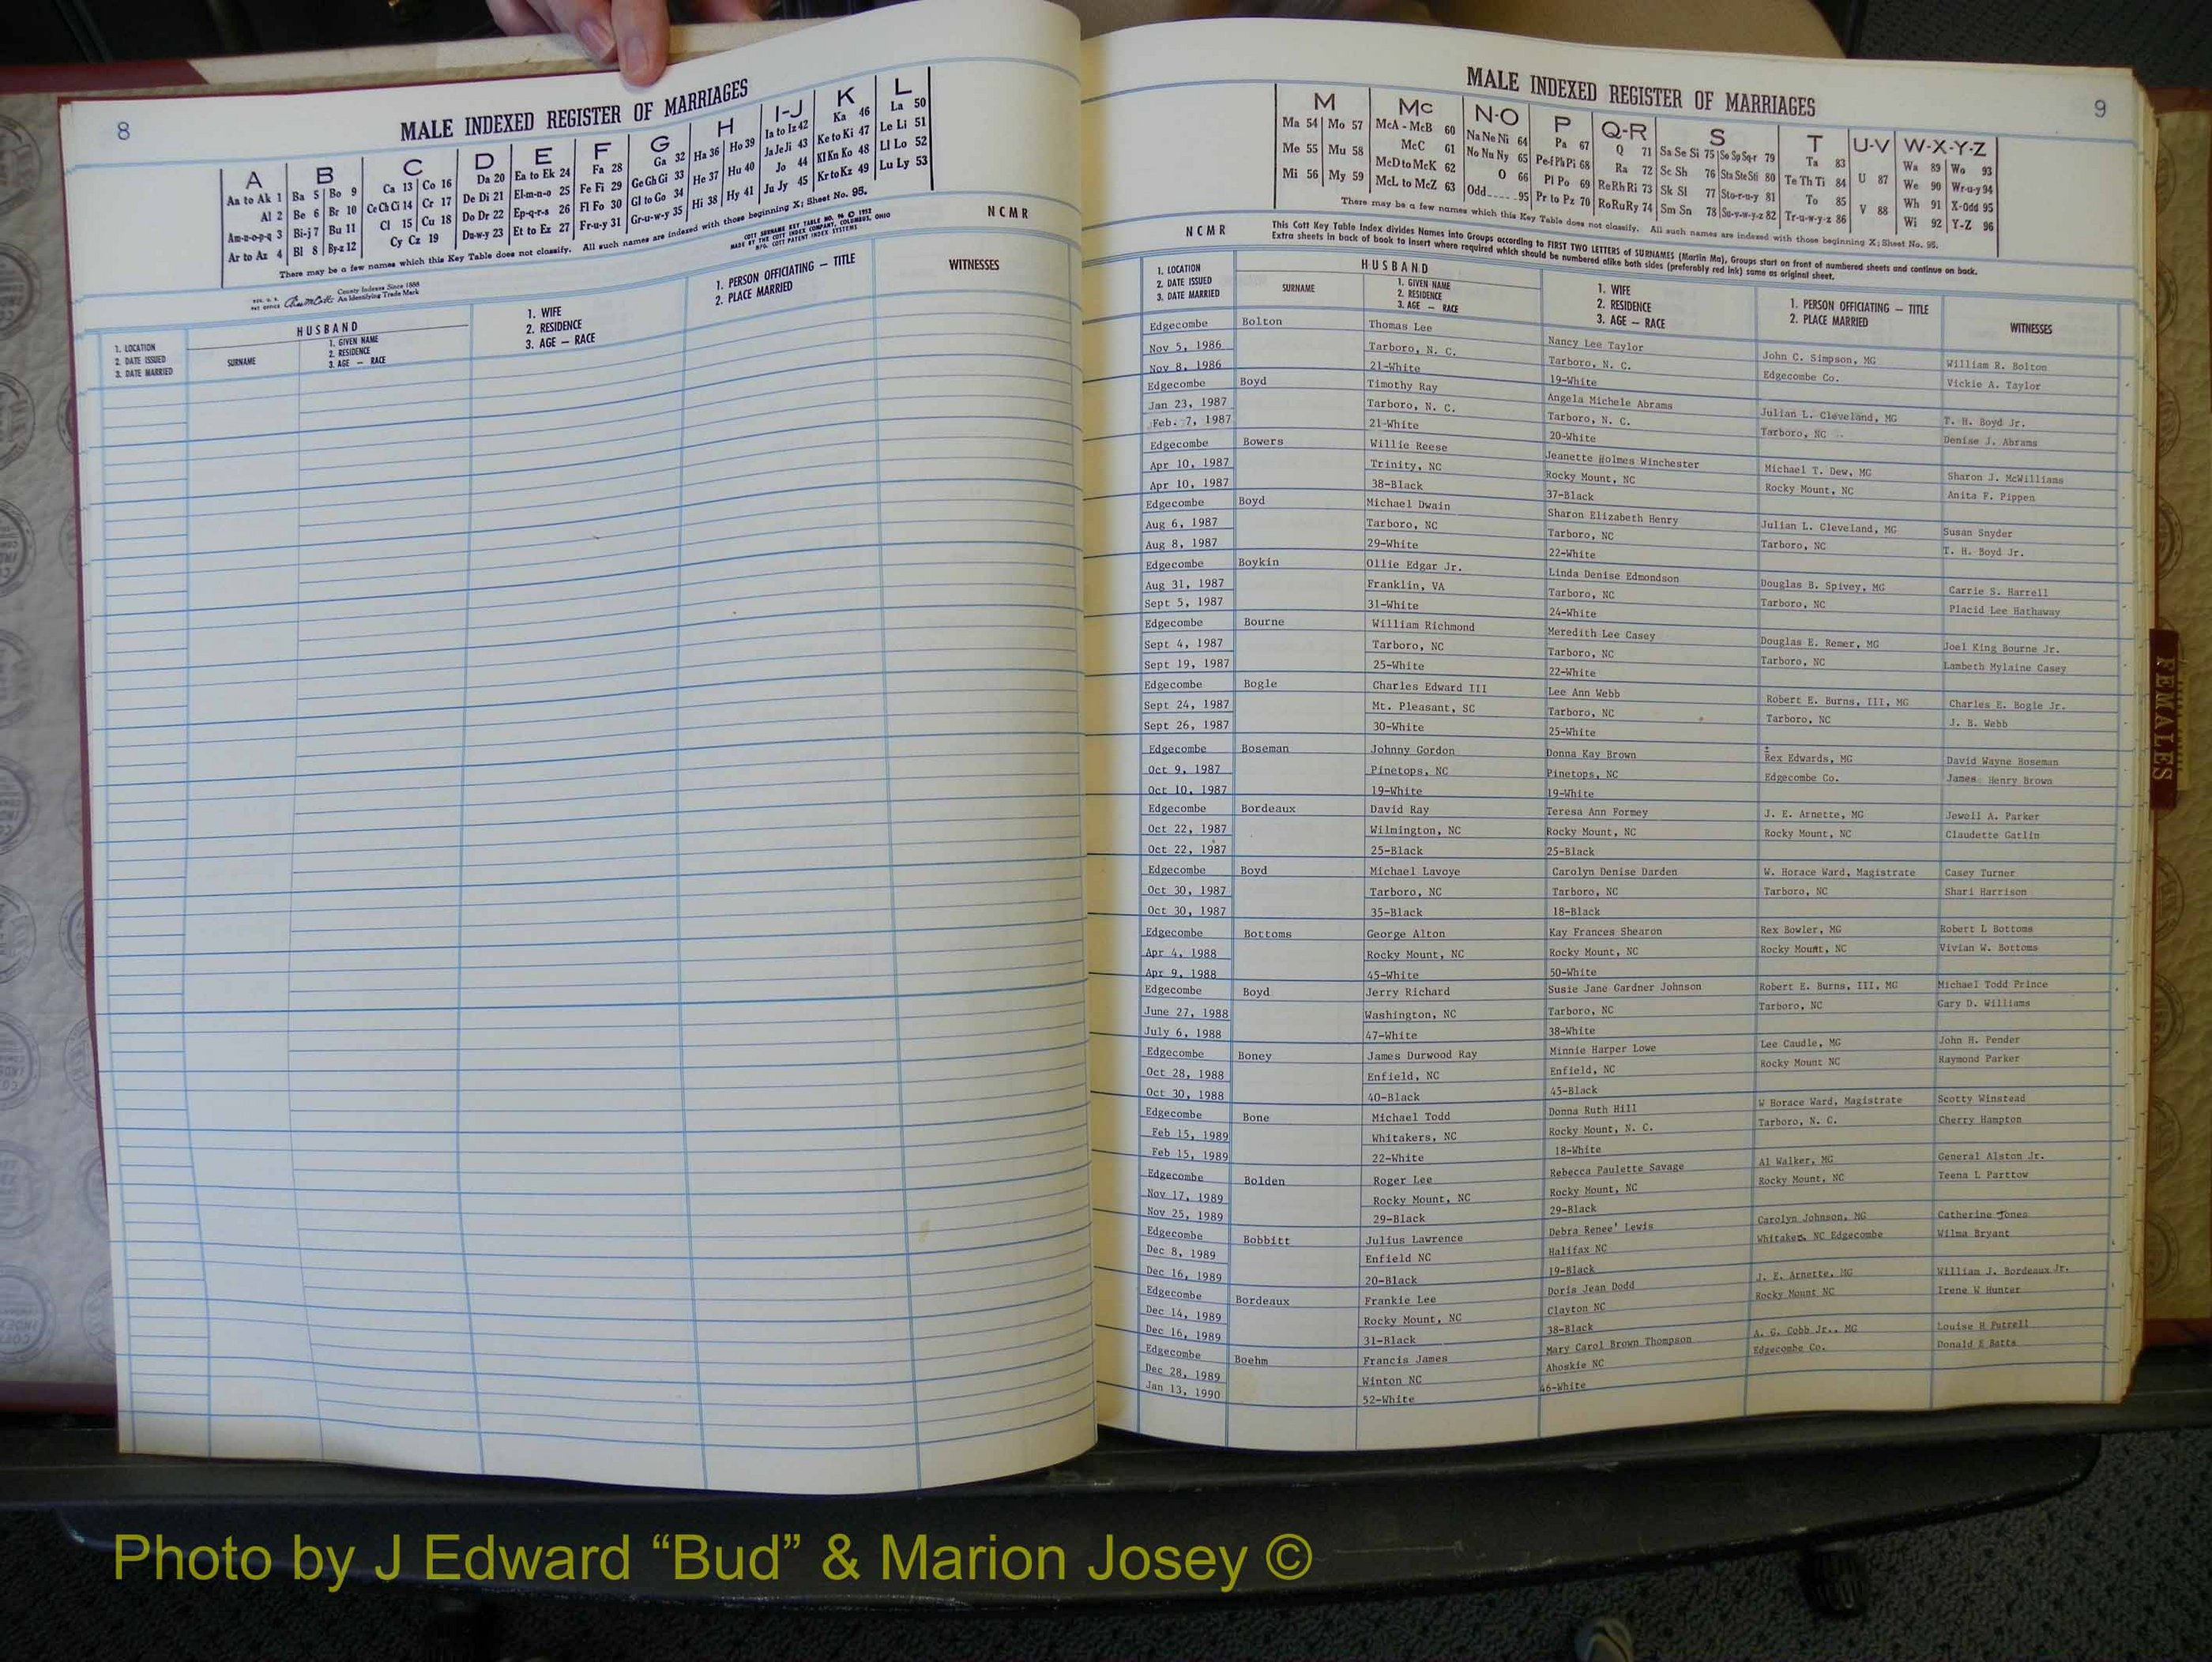 8
MALE INDEXED REGISTER OF MARRIAGES
A B C D E F G H I-J K L
Aa to Ak 1 Ba 5 Bo 9 Ca 13 Co 16 Da 20 Ea to Ek 24 Fa 28 Ga 32 Ha 36 Ho 39 Ia to Iz 42 Ka 46 La 50
Al 2 Be 6 Br 10 Ce Ch Ci 14 Cr 17 De Di 21 El-m-n-o 25 Fe Fi 29 Ge Gh Gi 33 He 37 Hu 40 Ja Je Ji 43 Ke to Ki 47 Le Li 51
Am-n-o-p-q 3 Bi-j 7 Bu 11 Cl 15 Cu 18 Do Dr 22 Ep-q-r-s 26 Fl Fo 30 Gl to Go 34 Hi 38 Hy 41 Jo 44 Kl Kn Ko 48 Ll Lo 52
Ar to Az 4 Bl 8 By-z 12 Cy Cz 19 Du-w-y 23 Et to Ez 27 Fr-u-y 31 Gr-u-w-y 35 Ju Jy 45 Kr to Kz 49 Lu Ly 53
There may be a few names which this Key Table does not classify. All such names are indexed with those beginning X; Sheet No. 95.
County Indexes Since 1888
An Identifying Trade Mark
COTT SURNAME KEY TABLE NO. 96 © 1952
MADE BY THE COTT INDEX COMPANY, COLUMBUS, OHIO
MFG. COTT PATENT INDEX SYSTEMS
NCMR
1. LOCATION
2. DATE ISSUED
3. DATE MARRIED
HUSBAND
SURNAME
1. GIVEN NAME
2. RESIDENCE
3. AGE — RACE
1. WIFE
2. RESIDENCE
3. AGE — RACE
1. PERSON OFFICIATING — TITLE
2. PLACE MARRIED
WITNESSES
MALE INDEXED REGISTER OF MARRIAGES
9
M Mc N-O P Q-R S T U-V W-X-Y-Z
Ma 54 Mo 57 McA - McB 60 Na Ne Ni 64 Pa 67 Q 71 Sa Se Si 75 So Sp Sq-r 79 Ta 83 Wa 89 Wo 93
Me 55 Mu 58 McC 61 No Nu Ny 65 Pe-f Ph Pi 68 Ra 72 Sc Sh 76 Sta Ste Sti 80 Te Th Ti 84 U 87 We 90 Wr-u-y 94
Mi 56 My 59 McD to McK 62 O 66 Pl Po 69 Re Rh Ri 73 Sk Sl 77 Sto-r-u-y 81 To 85 V 88 Wh 91 X-Odd 95
McL to McZ 63 Odd 95 Pr to Pz 70 Ro Ru Ry 74 Sm Sn 78 Su-v-w-y-z 82 Tr-u-w-y-z 86 Wi 92 Y-Z 96
There may be a few names which this Key Table does not classify. All such names are indexed with those beginning X; Sheet No. 95.
NCMR
This Cott Key Table Index divides Names into Groups according to FIRST TWO LETTERS of SURNAMES (Martin Ma), Groups start on front of numbered sheets and continue on back.
Extra sheets in back of book to insert where required which should be numbered alike both sides (preferably red ink) same as original sheet.
1. LOCATION
2. DATE ISSUED
3. DATE MARRIED
HUSBAND
SURNAME
1. GIVEN NAME
2. RESIDENCE
3. AGE — RACE
1. WIFE
2. RESIDENCE
3. AGE — RACE
1. PERSON OFFICIATING — TITLE
2. PLACE MARRIED
WITNESSES
Edgecombe Bolton Thomas Lee Nancy Lee Taylor John C. Simpson, MG William R. Bolton
Nov 5, 1986 Tarboro, N. C. Tarboro, N. C. Edgecombe Co. Vickie A. Taylor
Nov 8, 1986 21-White 19-White
Edgecombe Boyd Timothy Ray Angela Michele Abrams Julian L. Cleveland, MG T. H. Boyd Jr.
Jan 23, 1987 Tarboro, N. C. Tarboro, N. C. Tarboro, NC Denise J. Abrams
Feb. 7, 1987 21-White 20-White
Edgecombe Bowers Willie Reese Jeanette Holmes Winchester Michael T. Dew, MG Sharon J. McWilliams
Apr 10, 1987 Trinity, NC Rocky Mount, NC Rocky Mount, NC Anita F. Pippen
Apr 10, 1987 38-Black 37-Black
Edgecombe Boyd Michael Dwain Sharon Elizabeth Henry Julian L. Cleveland, MG Susan Snyder
Aug 6, 1987 Tarboro, NC Tarboro, NC Tarboro, NC T. H. Boyd Jr.
Aug 8, 1987 29-White 22-White
Edgecombe Boykin Ollie Edgar Jr. Linda Denise Edmondson Douglas B. Spivey, MG Carrie S. Harrell
Aug 31, 1987 Franklin, VA Tarboro, NC Tarboro, NC Placid Lee Hathaway
Sept 5, 1987 31-White 24-White
Edgecombe Bourne William Richmond Meredith Lee Casey Douglas E. Remer, MG Joel King Bourne Jr.
Sept 4, 1987 Tarboro, NC Tarboro, NC Tarboro, NC Lambeth Mylaine Casey
Sept 19, 1987 25-White 22-White
Edgecombe Bogle Charles Edward III Lee Ann Webb Robert E. Burns, III, MG Charles E. Bogle Jr.
Sept 24, 1987 Mt. Pleasant, SC Tarboro, NC Tarboro, NC J. B. Webb
Sept 26, 1987 30-White 25-White
Edgecombe Boseman Johnny Gordon Donna Kay Brown Rex Edwards, MG David Wayne Boseman
Oct 9, 1987 Pinetops, NC Pinetops, NC Edgecombe Co. James Henry Brown
Oct 10, 1987 19-White 19-White
Edgecombe Bordeaux David Ray Teresa Ann Formey J. E. Arnette, MG Jewell A. Parker
Oct 22, 1987 Wilmington, NC Rocky Mount, NC Rocky Mount, NC Claudette Gatlin
Oct 22, 1987 25-Black 25-Black
Edgecombe Boyd Michael Lavoye Carolyn Denise Darden W. Horace Ward, Magistrate Casey Turner
Oct 30, 1987 Tarboro, NC Tarboro, NC Tarboro, NC Shari Harrison
Oct 30, 1987 35-Black 18-Black
Edgecombe Bottoms George Alton Kay Frances Shearon Rex Bowler, MG Robert L Bottoms
Apr 4, 1988 Rocky Mount, NC Rocky Mount, NC Rocky Mount, NC Vivian W. Bottoms
Apr 9, 1988 45-White 50-White
Edgecombe Boyd Jerry Richard Susie Jane Gardner Johnson Robert E. Burns, III, MG Michael Todd Prince
June 27, 1988 Washington, NC Tarboro, NC Tarboro, NC Gary D. Williams
July 6, 1988 47-White 38-White
Edgecombe Boney James Durwood Ray Minnie Harper Lowe Lee Caudle, MG John H. Pender
Oct 28, 1988 Enfield, NC Enfield, NC Rocky Mount NC Raymond Parker
Oct 30, 1988 40-Black 45-Black
Edgecombe Bone Michael Todd Donna Ruth Hill W Horace Ward, Magistrate Scotty Winstead
Feb 15, 1989 Whitakers, NC Rocky Mount, N. C. Tarboro, N. C. Cherry Hampton
Feb 15, 1989 22-White 18-White
Edgecombe Bolden Roger Lee Rebecca Paulette Savage Al Walker, MG General Alston Jr.
Nov 17, 1989 Rocky Mount, NC Rocky Mount, NC Rocky Mount, NC Teena L Parttow
Nov 25, 1989 29-Black 29-Black
Edgecombe Bobbitt Julius Lawrence Debra Renee' Lewis Carolyn Johnson, MG Catherine Jones
Dec 8, 1989 Enfield NC Halifax NC Whitakers NC Edgecombe Wilma Bryant
Dec 16, 1989 20-Black 19-Black
Edgecombe Bordeaux Frankie Lee Doris Jean Dodd J. E. Arnette, MG William J. Bordeaux Jr.
Dec 14, 1989 Rocky Mount, NC Clayton NC Rocky Mount NC Irene W Hunter
Dec 16, 1989 31-Black 38-Black
Edgecombe Boehm Francis James Mary Carol Brown Thompson A. G. Cobb Jr., MG Louise H Futrell
Dec 28, 1989 Winton NC Ahoskie NC Edgecombe Co. Donald E Batts
Jan 13, 1990 52-White 46-White
FEMALES
Photo by J Edward “Bud” & Marion Josey ©